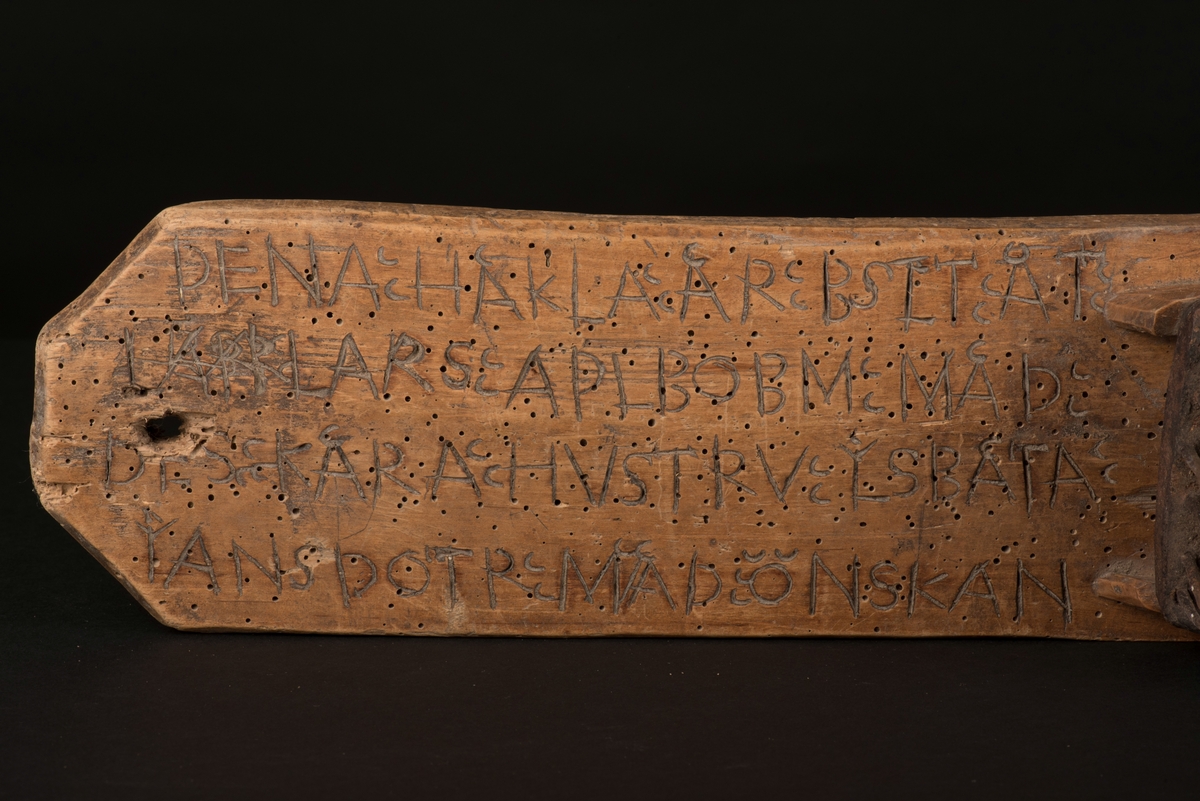 DENA : HÄKLA : ÄR : BSTLT : ÅT :
LARS : APLBOBM : MÄD :
DES : KÄRA : HVSTRV : YLSBÄTA :
YANSDOTR : MÄD : ÖNSKAN